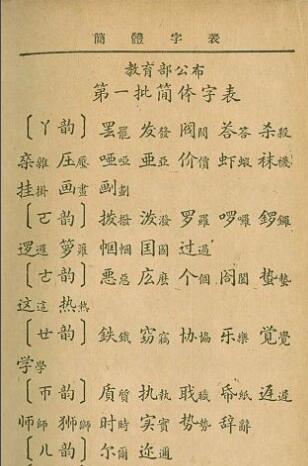 簡體字表
教育部公布
第一批简体字表
〔ㄚ韵〕罢罷 发發 阀閥 荅答 杀殺
杂雜 压壓 哑啞 亚亞 价價 虾蝦 袜襪
挂掛 画畫 划劃
〔ㄛ韵〕拨撥 泼潑 罗羅 啰囉 锣鑼
逻邏 箩籮 帼幗 国國 过過
〔ㄜ韵〕恶惡 庅麼 个個 阁閣 蛰蟄
这這 热熱
〔ㄝ韵〕鉄鐵 窃竊 协協 乐樂 觉覺
学學
〔ㄭ韵〕质質 执執 职職 帋紙 迟遲
师師 狮獅 时時 实實 势勢 辞辭
〔ㄦ韵〕尔爾 迩邇